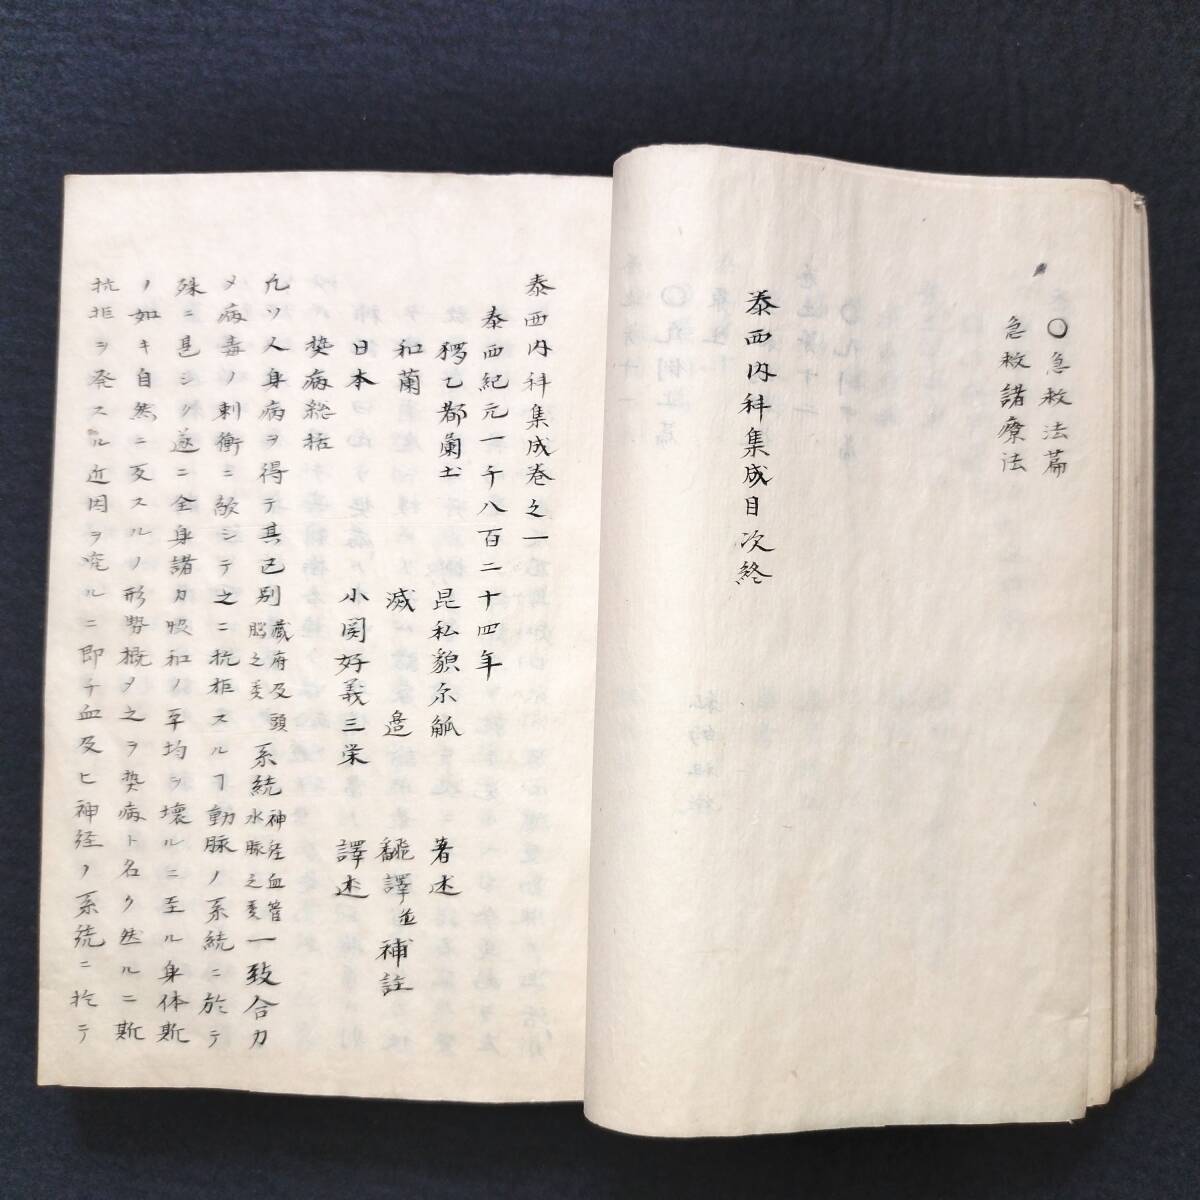 〇急救法篇
急救諸療法
泰西内科集成目次終
泰西内科集成巻之一
泰西紀元一千八百二十四年
獨乙都蘭土 昆私貌尓觚 著述
和蘭 滅 邉 飜譯並補註
日本 小関好義三栄 譯述
焚病総括
凡ソ人身病ヲ得テ其己別蔵府及頭脳之類系統神経血管水脉之類一致合力
メ病毒ノ刺衝ニ敵シテ之ニ抗拒スルヿ動脉ノ系統ニ於テ
殊ニ甚シク遂ニ全身諸力股和ノ平均ヲ壊ルニニ至ル身体斯
ノ如キ自然ニ反スルノ形勢概メ之ヲ焚病ト名ク然ルニ斯
抗拒ヲ発スル近因ヲ究ルニ即チ血及ヒ神経ノ系統ニ於テ